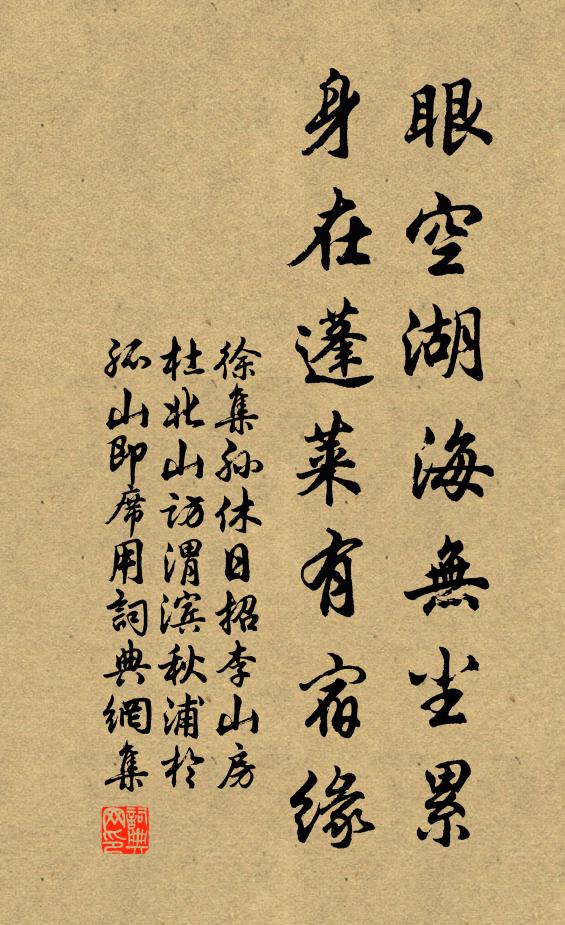 眼空湖海無尘累
身在蓬莱有宿緣
徐集孙休日招李山房
杜北山访渭滨秋浦於
孤山即席用詞典網集
詞典
网印